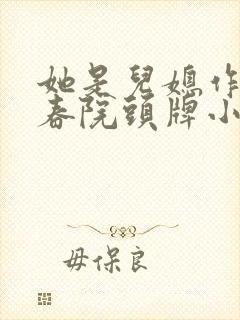 她是兒媳作
春院頭牌小
毋保良